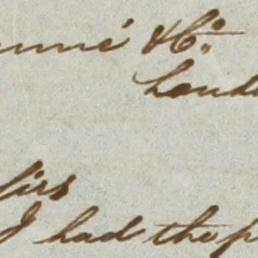 & Co.
Lond
Sirs
I had the p